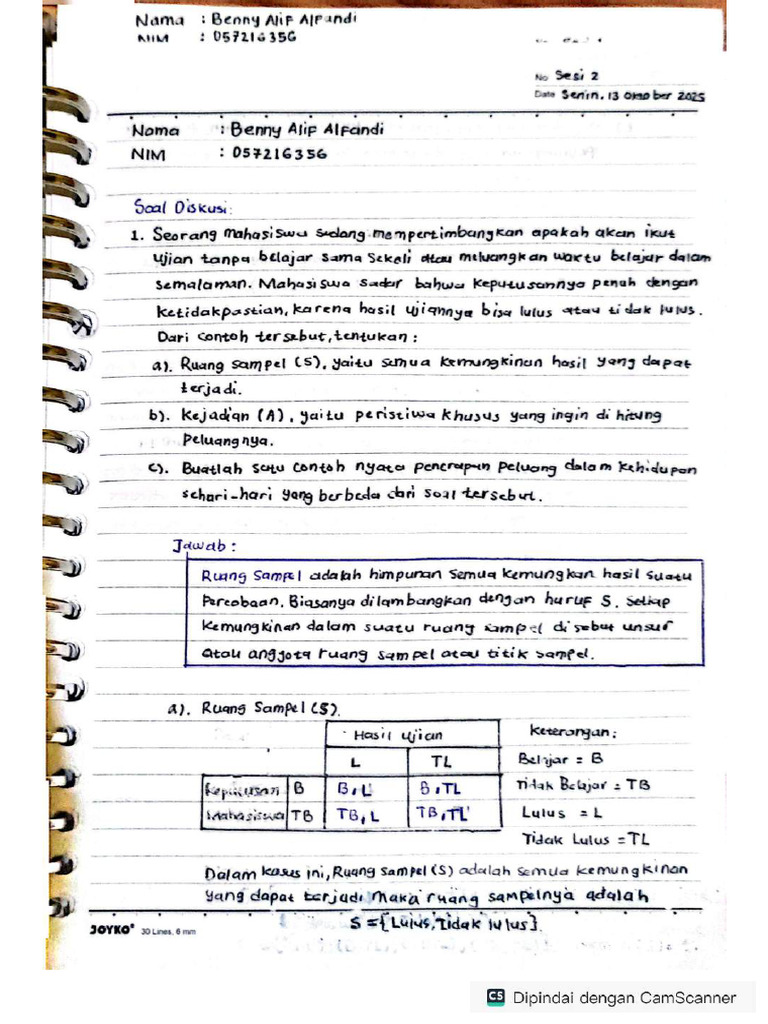 Nama : Benny Alif Alfandi
NIM : 057216356
No Sesi 2
Date Senin, 13 Oktober 2025
Nama : Benny Alif Alfandi
NIM : 057216356
Soal Diskusi:
1. Seorang mahasiswa sedang mempertimbangkan apakah akan ikut
ujian tanpa belajar sama sekali atau meluangkan waktu belajar dalam
semalaman. Mahasiswa sadar bahwa keputusannya penuh dengan
ketidakpastian, karena hasil ujiannya bisa lulus atau tidak lulus.
Dari contoh tersebut, tentukan :
a). Ruang sampel (S), yaitu semua kemungkinan hasil yang dapat
terjadi.
b). Kejadian (A), yaitu peristiwa khusus yang ingin di hitung
Peluangnya.
c). Buatlah satu contoh nyata penerapan peluang dalam kehidupan
sehari-hari yang berbeda dari soal tersebut.
Jawab :
Ruang Sampel adalah himpunan semua kemungkan hasil suatu
Percobaan. Biasanya dilambangkan dengan huruf S. Setiap
kemungkinan dalam suatu ruang sampel di sebut unsur
atau anggota ruang sampel atau titik sampel.
a). Ruang Sampel (S).
Hasil Ujian Keterangan :
L TL Belajar = B
Keputusan B B,L B,TL Tidak Belajar = TB
Mahasiswa TB TB,L TB,TL Lulus = L
Tidak Lulus = TL
Dalam kasus ini, Ruang Sampel (S) adalah semua kemungkinan
yang dapat terjadi maka ruang sampelnya adalah
S = {Lulus, Tidak lulus}.
JOYKO 30 Lines, 6 mm
CS Dipindai dengan CamScanner